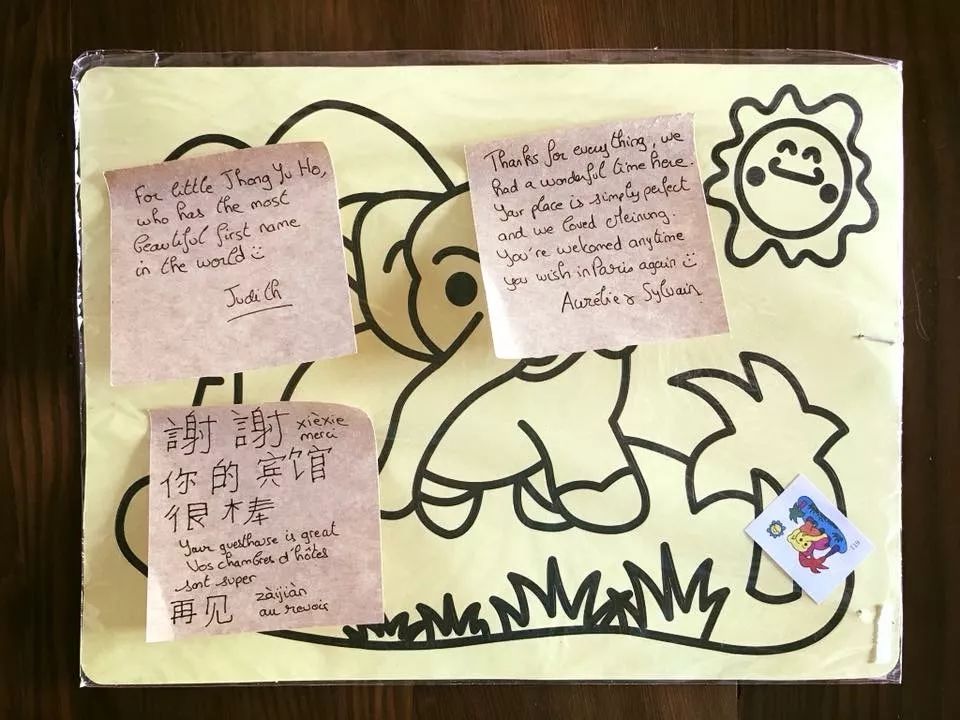 For little Jhong Yu Ho,
who has the most
beautiful first name
in the world
Judith
Thanks for everything, we
had a wonderful time here.
Your place is simply perfect
and we loved Meinung.
You're welcomed anytime
you wish in Paris again
Aurélie & Sylvain.
謝 謝 xièxie
merci
你 的 宾馆
很 棒
Your guesthouse is great
Vos chambres d'hôtes
sont super
再见 zàijiàn
au revoir